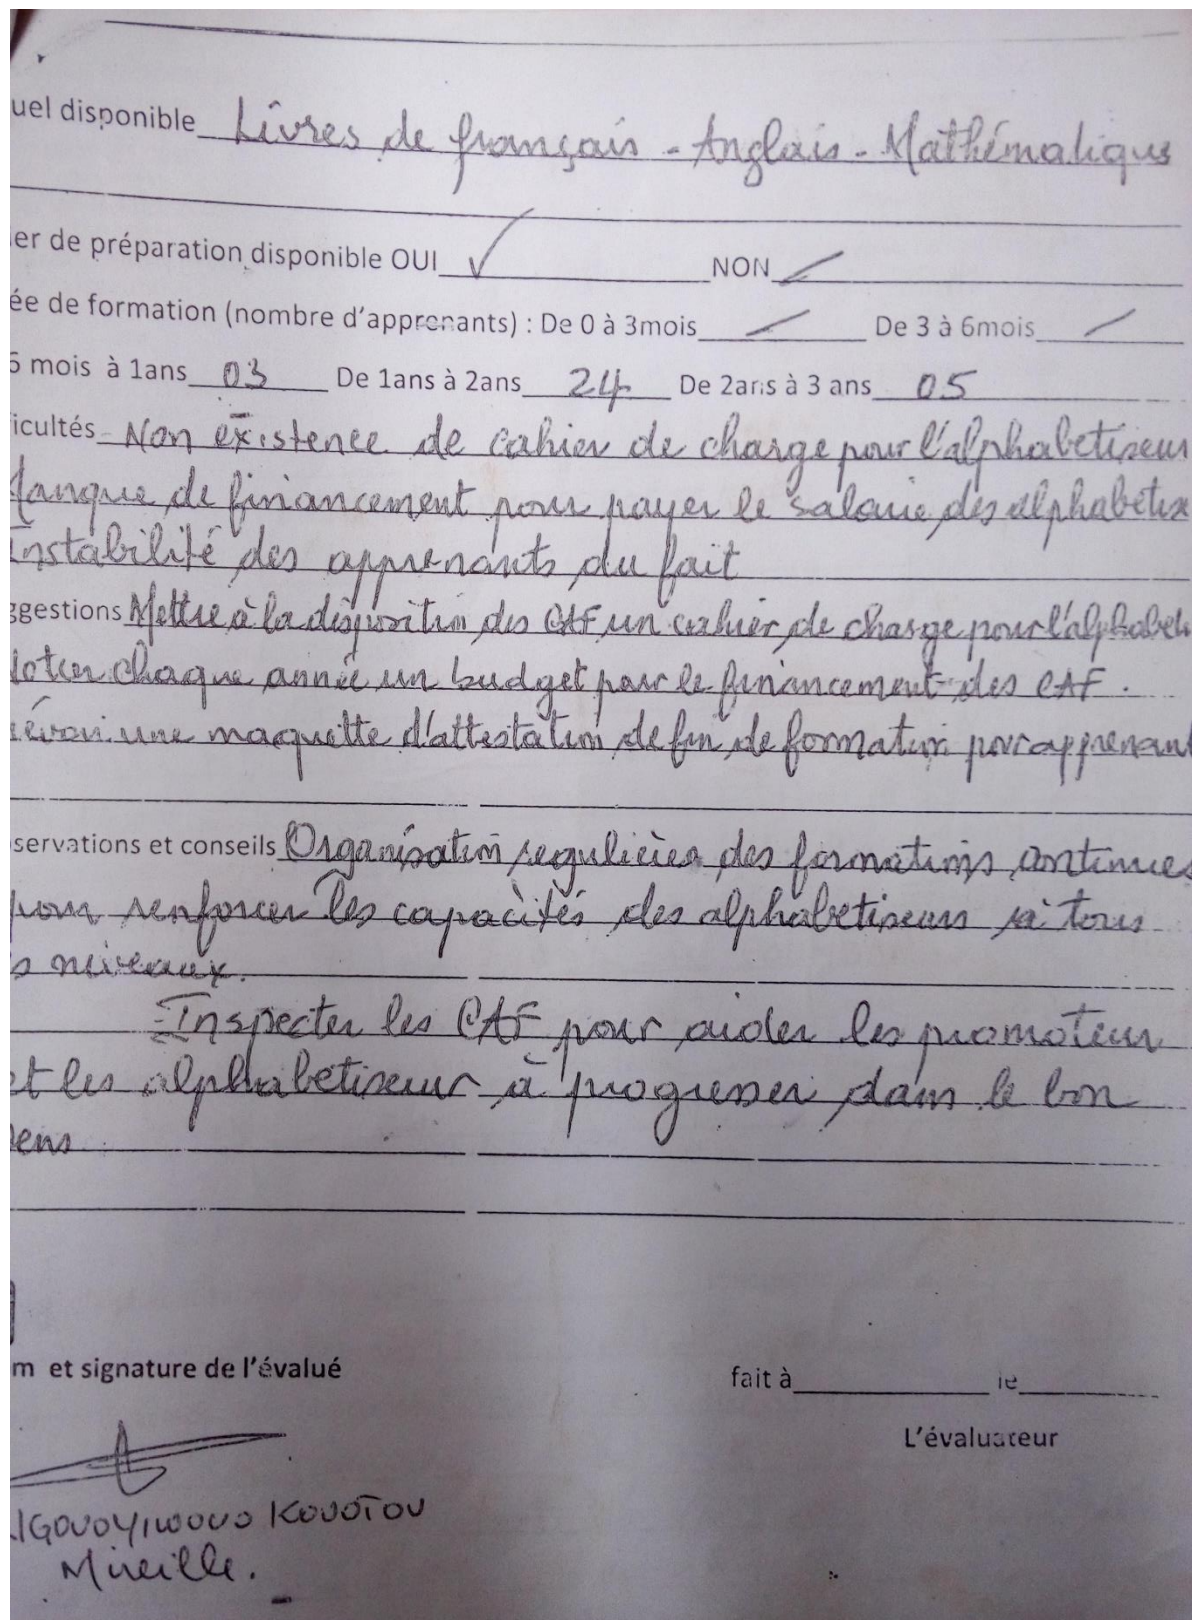 uel disponible Livres de français - Anglais - Mathématiques
er de préparation disponible OUI ✓ NON /
ée de formation (nombre d'apprenants) : De 0 à 3mois / De 3 à 6mois /
6 mois à 1ans 03 De 1ans à 2ans 24 De 2ans à 3 ans 05
icultés Non existence de cahier de charge pour l'alphabetiseur
Manque de financement pour payer le salaire des alphabetis
Instabilité des apprenants du fait
ggestions Mettre à la disposition des CAF un cahier de charge pour l'alphabeti
Doter chaque année un budget pour le financement des CAF.
révoir une maquette d'attestation de fin de formation pour apprenant
servations et conseils Organisation regulières des formations continues
pour renforcer les capacités des alphabetiseurs à tous
s niveaux.
- Inspecter les CAF pour aider les promoteur
et les alphabetiseur à progresser dans le bon
sens
m et signature de l'évalué
fait à le
L'évaluateur
IGOVOYIWOUO KOUOTOU
Mireille.